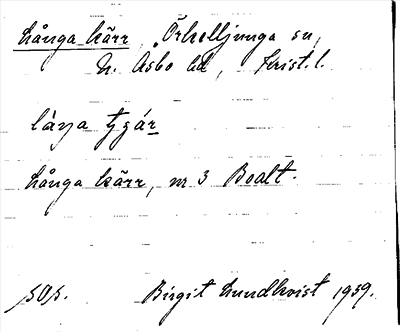 Långa kärr, Örkelljunga sn,
N. Åsbo hd, Krist. l.
låŋa tɟär
Långa kärr, nr 3 Boalt.
Birgit Lundkvist 1959.